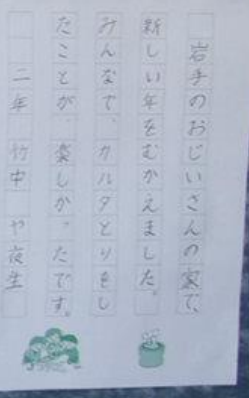 岩手のおじいさんの家で、
新しい年をむかえました。
みんなで、カルタとりをし
たことが、楽しかったです。
二年 竹中 や夜生